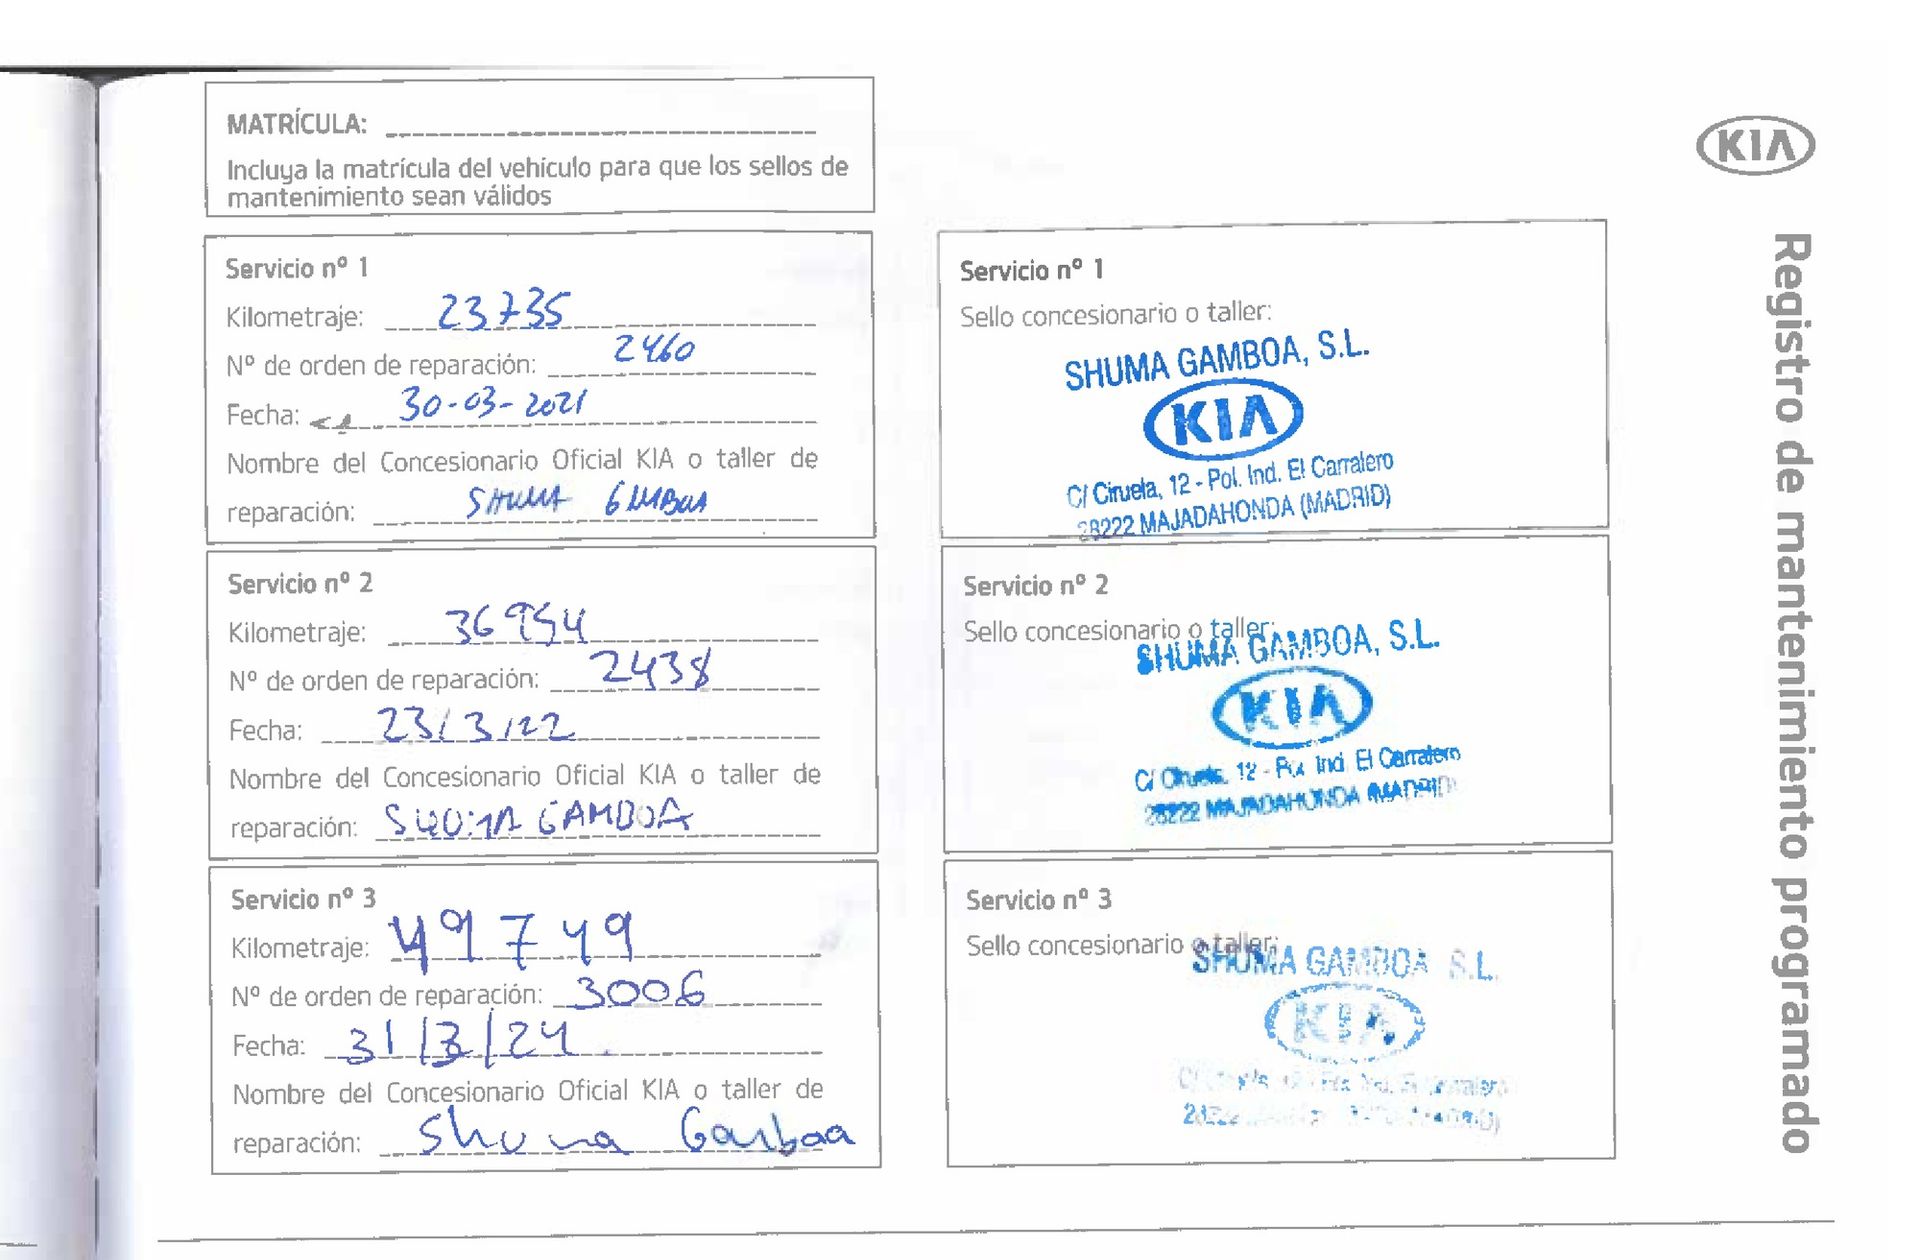 MATRÍCULA:
Incluya la matrícula del vehículo para que los sellos de
mantenimiento sean válidos
KIA
Registro de mantenimiento programado
Servicio nº 1
Kilometraje: 23735
Nº de orden de reparación: 2460
Fecha: 30-03-2021
Nombre del Concesionario Oficial KIA o taller de
reparación: SHUMA GAMBOA
Servicio nº 1
Sello concesionario o taller:
SHUMA GAMBOA, S.L.
KIA
C/ Ciruela, 12 - Pol. Ind. El Carralero
28222 MAJADAHONDA (MADRID)
Servicio nº 2
Kilometraje: 36954
Nº de orden de reparación: 2438
Fecha: 23/3/22
Nombre del Concesionario Oficial KIA o taller de
reparación: SHUMA GAMBOA
Servicio nº 2
Sello concesionario o taller:
SHUMA GAMBOA, S.L.
KIA
C/ Ciruela, 12 - Pol. Ind. El Carralero
28222 MAJADAHONDA (MADRID)
Servicio nº 3
Kilometraje: 49749
Nº de orden de reparación: 3006
Fecha: 31/3/24
Nombre del Concesionario Oficial KIA o taller de
reparación: Shuma Gamboa
Servicio nº 3
Sello concesionario o taller:
SHUMA GAMBOA S.L.
KIA